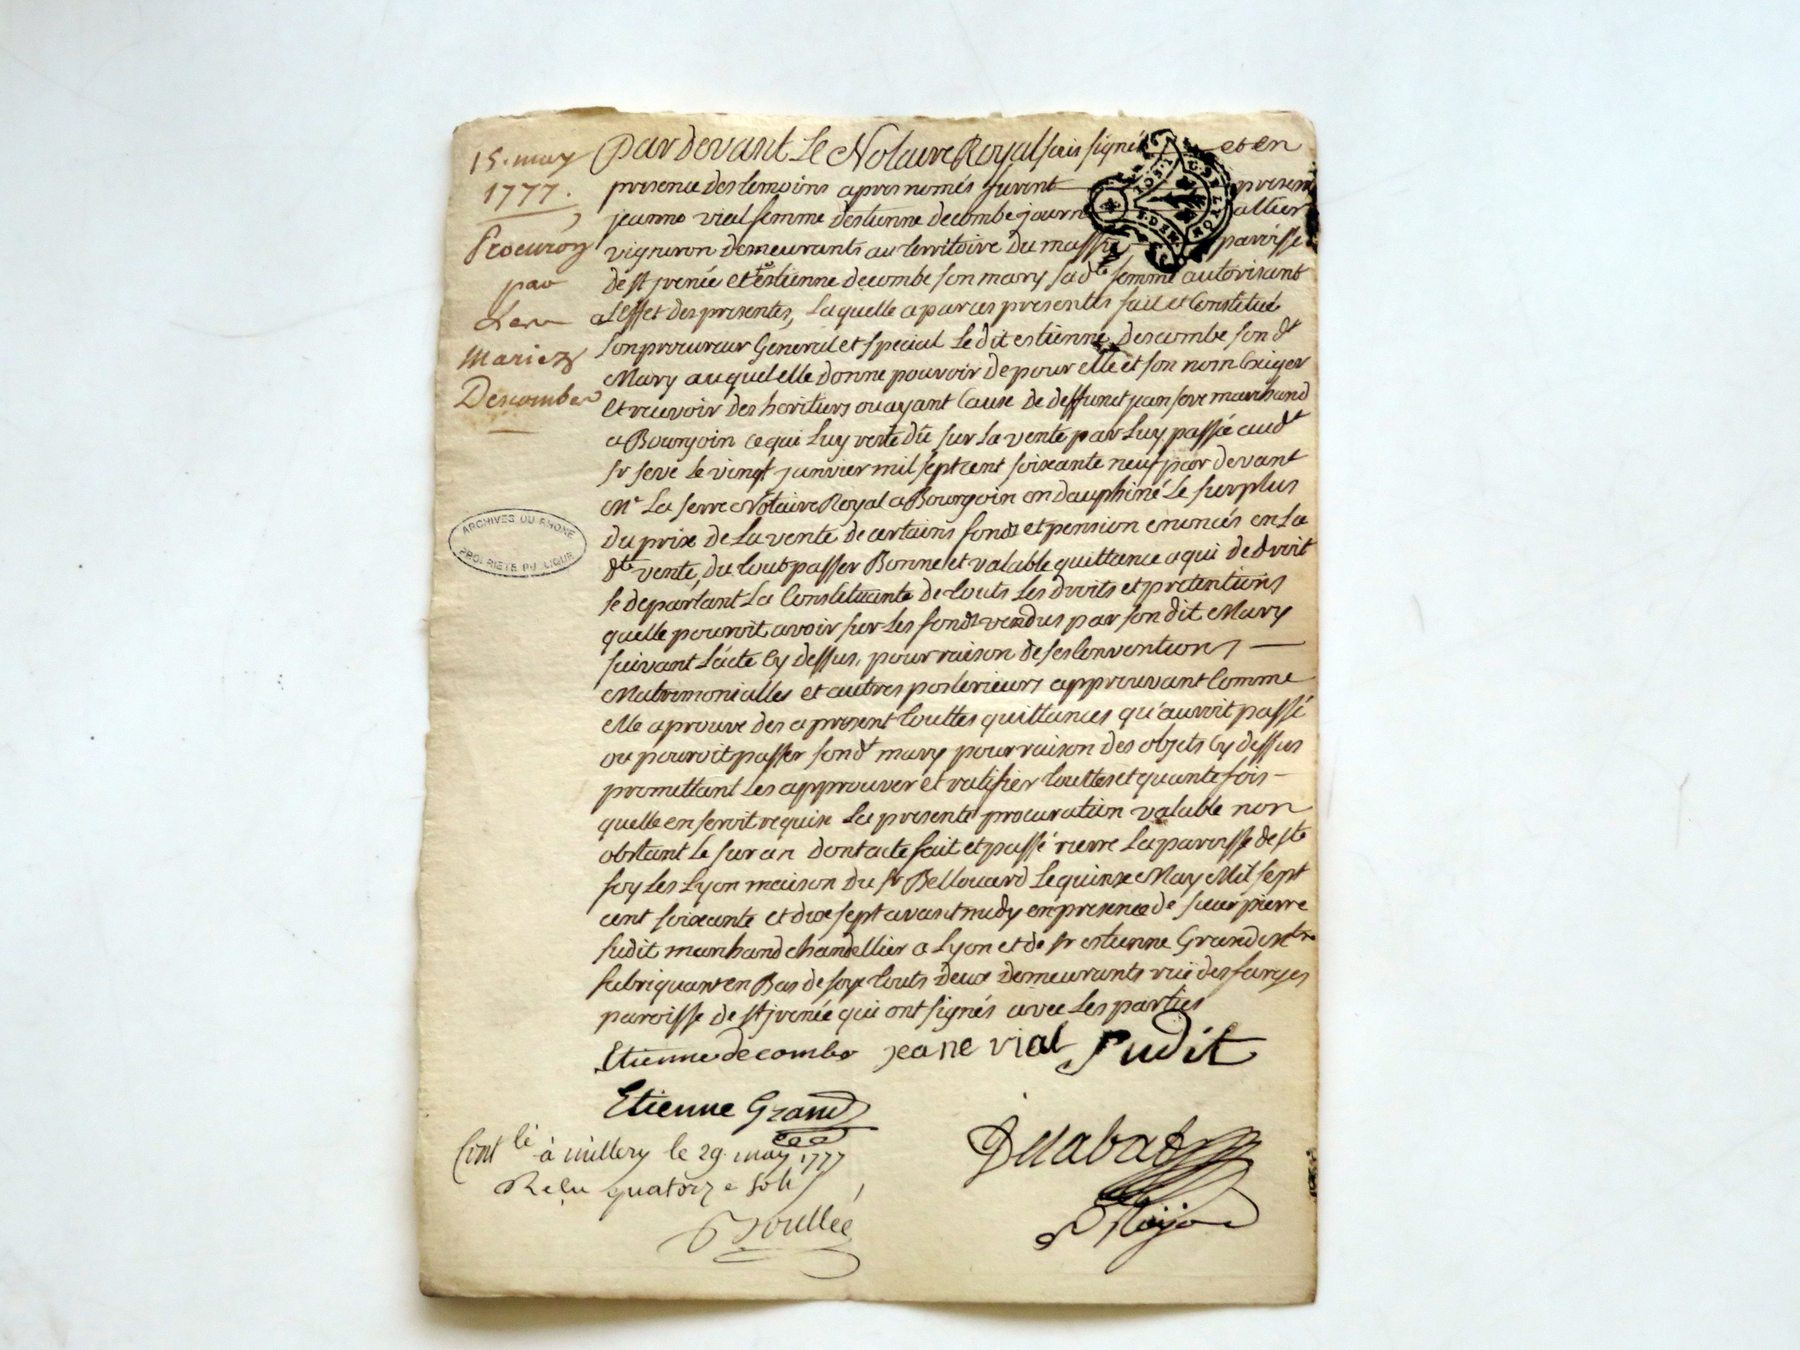 15. may
1777.
Procuron
par
Les
Mariez
Descombes
Pardevant Le Notaire Royal sous signé et en
presence des temoins apres només furent presens
jeanne vial femme d'estienne decombe journallier
vigneron demeurants au territoire du massu paroisse
de st jrenée et estienne decombe son mary sa dte femme autorisant
a L'effet des presentes, Laquelle a par ces presentes fait et Constitué
son procureur General et special Le dit estienne Descombe son dt
Mary auquel elle donne pouvoir de pour elle et son nom Exiger
Et recevoir des heritiers ou ayant Cause de deffunct jean seve marchand
a Bourgoin ce qui Luy reste dü sur La vente par Luy passée audt
sr seve le vingt janvier mil sept cent soixante neuf par devant
Me La serre Notaire Royal a Bourgoin en dauphiné Le surplus
du prix de La vente de certains fonds et pension enoncés en La
dte vente, du tout passer Bonne et valable quittance a qui de droit
se departant La Constituante de touts Les droits et pretentions
quelle pouroit avoir sur Les fonds vendus par son dit Mary
suivant L'acte Cy dessus, pour raison de ses Conventions
Matrimonialles et autres posterieurs approuvant Comme
elle aprouve des a present touttes quittances qu'auroit passé
ou pouroit passer son dt mary pour raison des objets Cy dessus
promettant Les approuver et ratifier touttes et quante fois
quelle en seroit requise La presente procuration valable non
obstant Le sur an dont acte fait et passé rierre La paroisse de ste
foy Les Lyon maison du sr Bellouard Le quinze May Mil sept
cent soixante et dix sept avant midy en presence de sieur pierre
sudit marchand chandellier a Lyon et de sr estienne Grand mtre
fabriquant en Bas de soye touts deux demeurants rüe des farges
paroisse de st jrenée qui ont signés avec Les parties
Etienne decombe jeane vial Sudit
Etienne Grand
Contlé à millery le 29. may 1777
Reçu quatorze sols
ARCHIVES DU RHONE
PROPRIETE PUBLIQUE